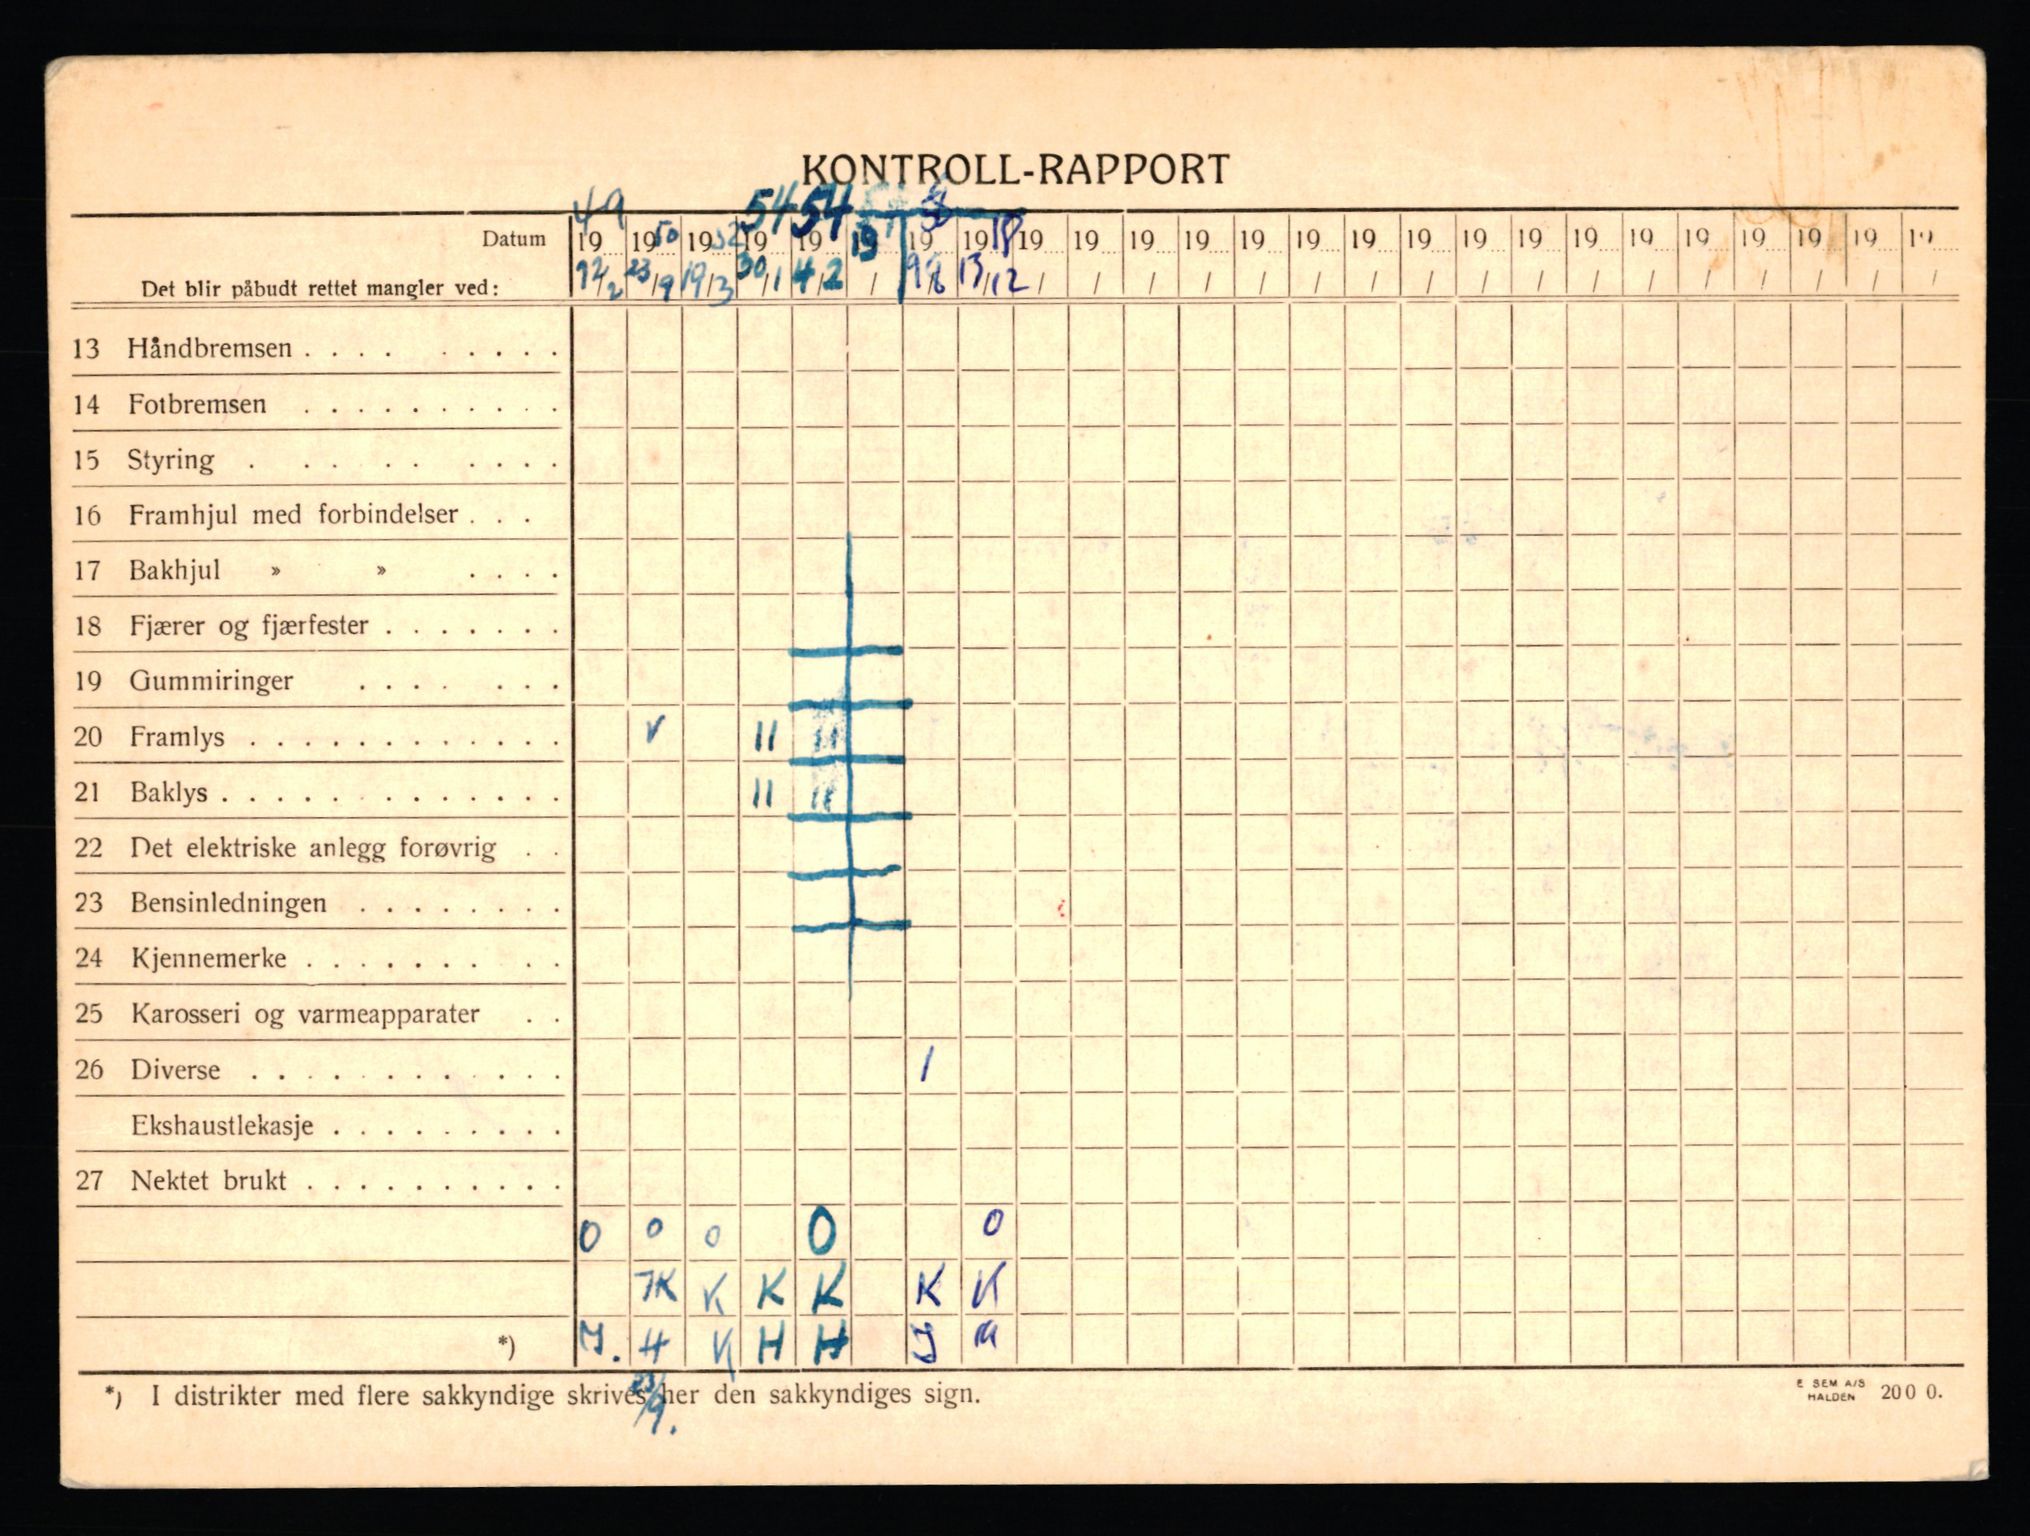 KONTROLL-RAPPORT
49 50 52 54 54
Datum 19 19 19 19 19 19 19 19 19 19 19 19 19 19 19 19 19 19 19 19 19 19 19 19 19
Det blir påbudt rettet mangler ved: 23/9 19/3 30/1 4/2 / 13/12 / / / / / / / / / / / / / / / / /
13 Håndbremsen . . . . . . . . .
14 Fotbremsen . . . . . . . . . .
15 Styring . . . . . . . . .
16 Framhjul med forbindelser . . .
17 Bakhjul » » . . . .
18 Fjærer og fjærfester . . . . . . .
19 Gummiringer . . . . . . .
20 Framlys . . . . . . . . . . . . V II II
21 Baklys . . . . . . . . . . . . . II II
22 Det elektriske anlegg forøvrig . .
23 Bensinledningen . . . . . . . .
24 Kjennemerke . . . . . . . . .
25 Karosseri og varmeapparater . .
26 Diverse . . . . . . . . . . . I
Ekshaustlekasje . . . . . . . . .
27 Nektet brukt . . . . . . . . . .
0 0 0 0 0
K K K K K
*) H K H H
*) I distrikter med flere sakkyndige skrives her den sakkyndiges sign.
23/9.
E SEM A/S
HALDEN 200 0.